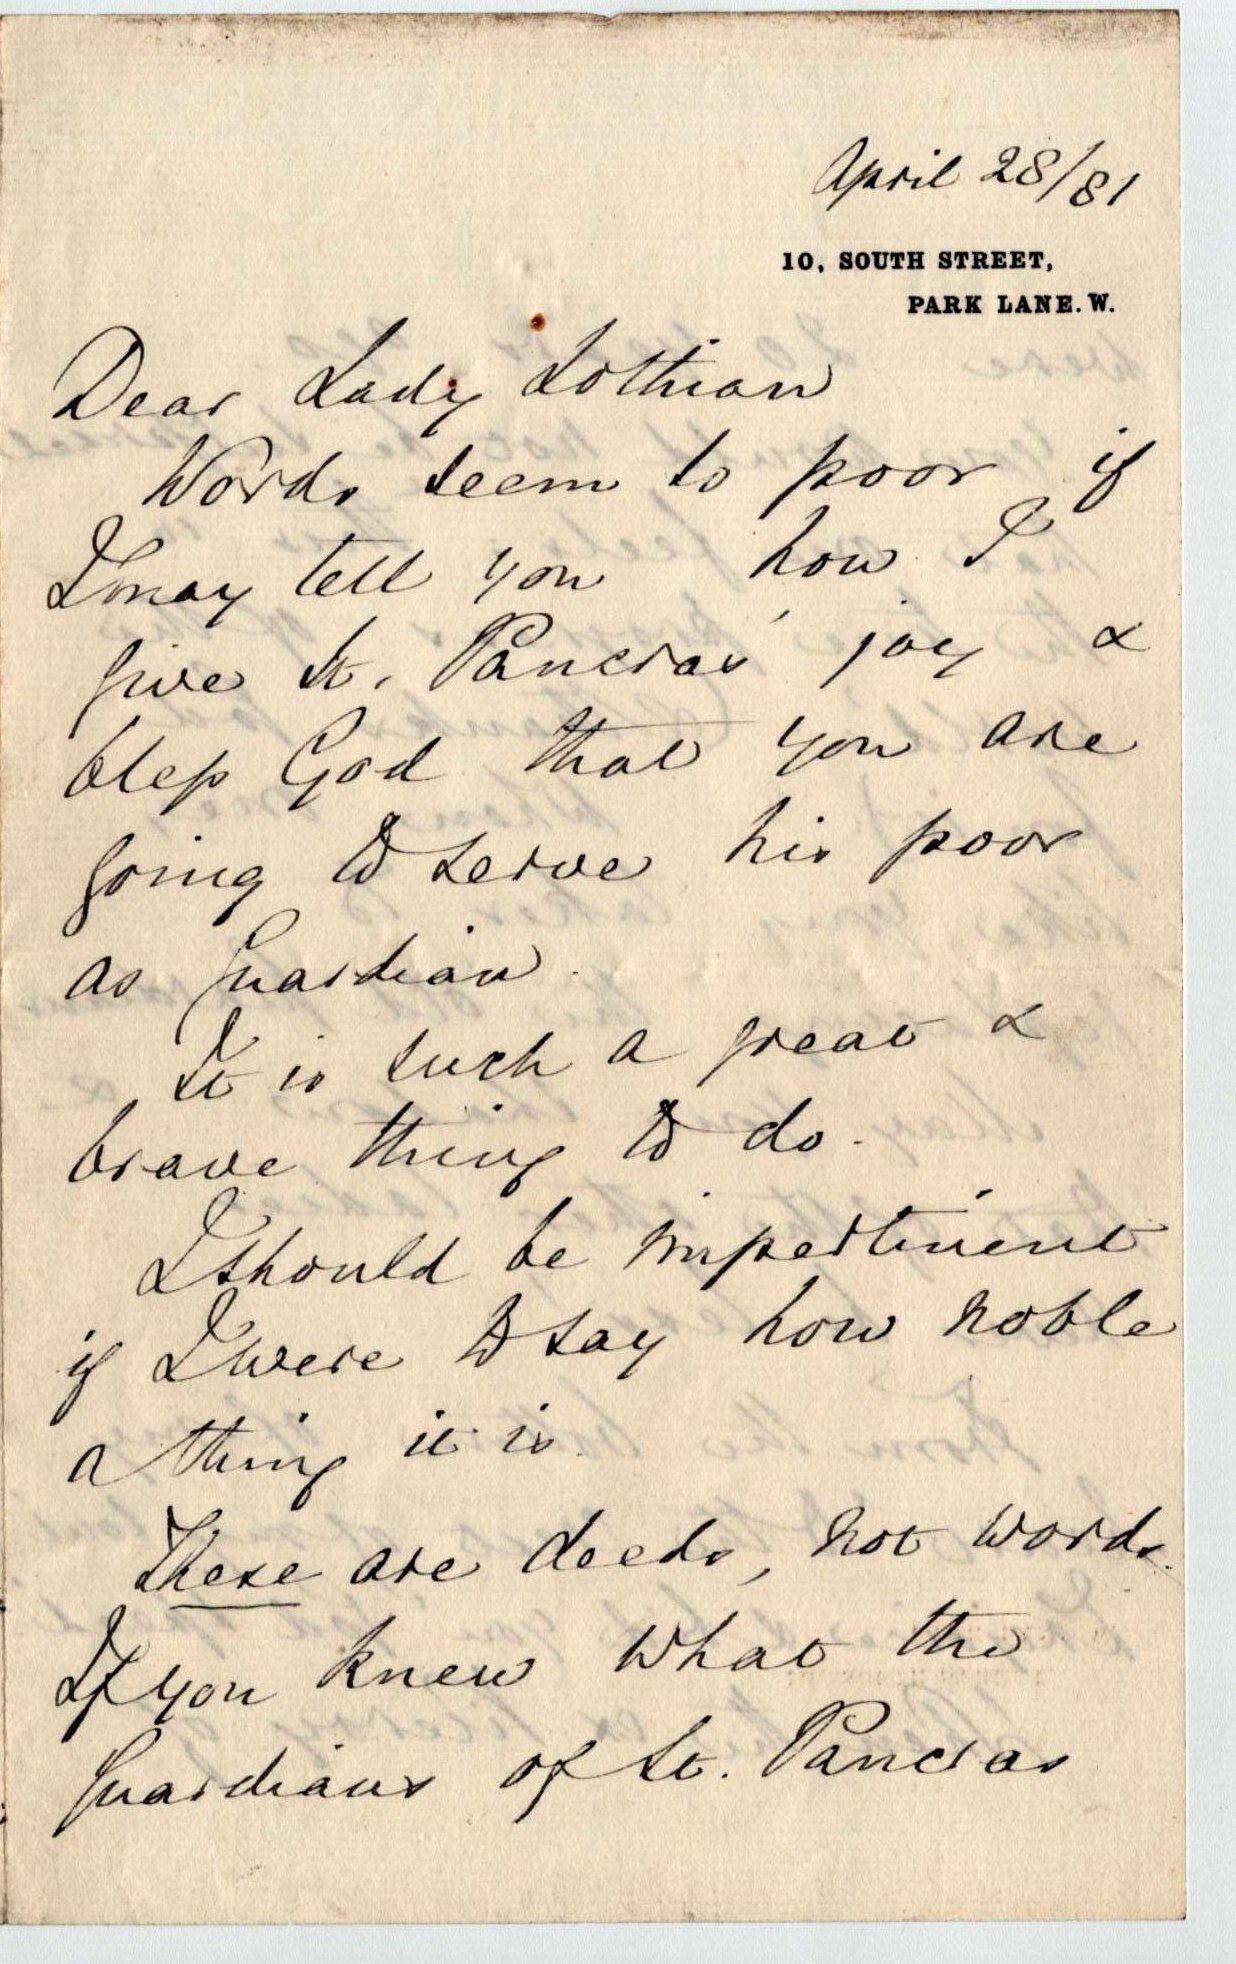 April 28/81
10, SOUTH STREET,
PARK LANE. W.
Dear Lady Lothian
Words seem so poor if
I may tell you how I
give St. Pancras' joy &
bless God that you are
going to serve his poor
as Guardian.
It is such a great &
brave thing to do.
I should be impertinent
if I were to say how noble
a thing it is.
These are deeds, not words.
If you knew what the
Guardians of St. Pancras